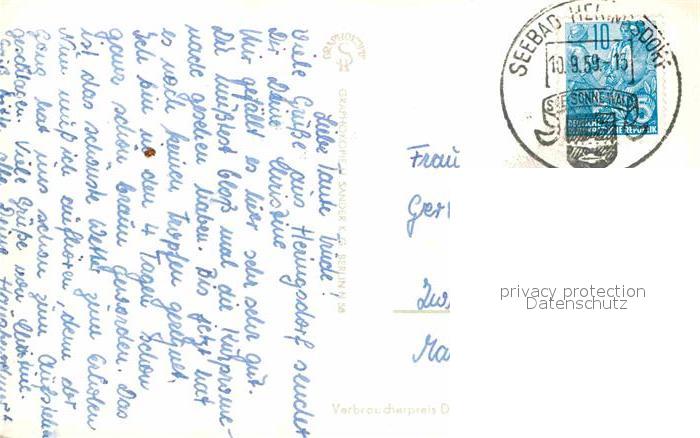 Liebe Tante Trude!
Viele Grüße aus Heringsdorf sendet
Dir Deine Christine
Mir gefällt es hier sehr gut.
Du müßtest bloß mal die Kurprome-
nade gesehen haben. Bis jetzt hat
es noch keinen Tropfen geregnet.
Ich bin in den 4 Tagen schon
ganz schön braun geworden. Das
ist das schönste Wetter zum Erholen
Nun muß ich aufhören, denn der
Gong hat uns schon zum
Viele Grüße von Christine.
GRAPHOKOPIE H. SANDER K.G. BERLIN N 58
SEEBAD HERINGSDORF
10.9.59.-15
SEE SONNE WALD
10
5
DEUTSCHE
DEMOKRATISCHE REPUBLIK
Frau
Ger
Zw
Ma
Verbraucherpreis D
privacy protection
Datenschutz